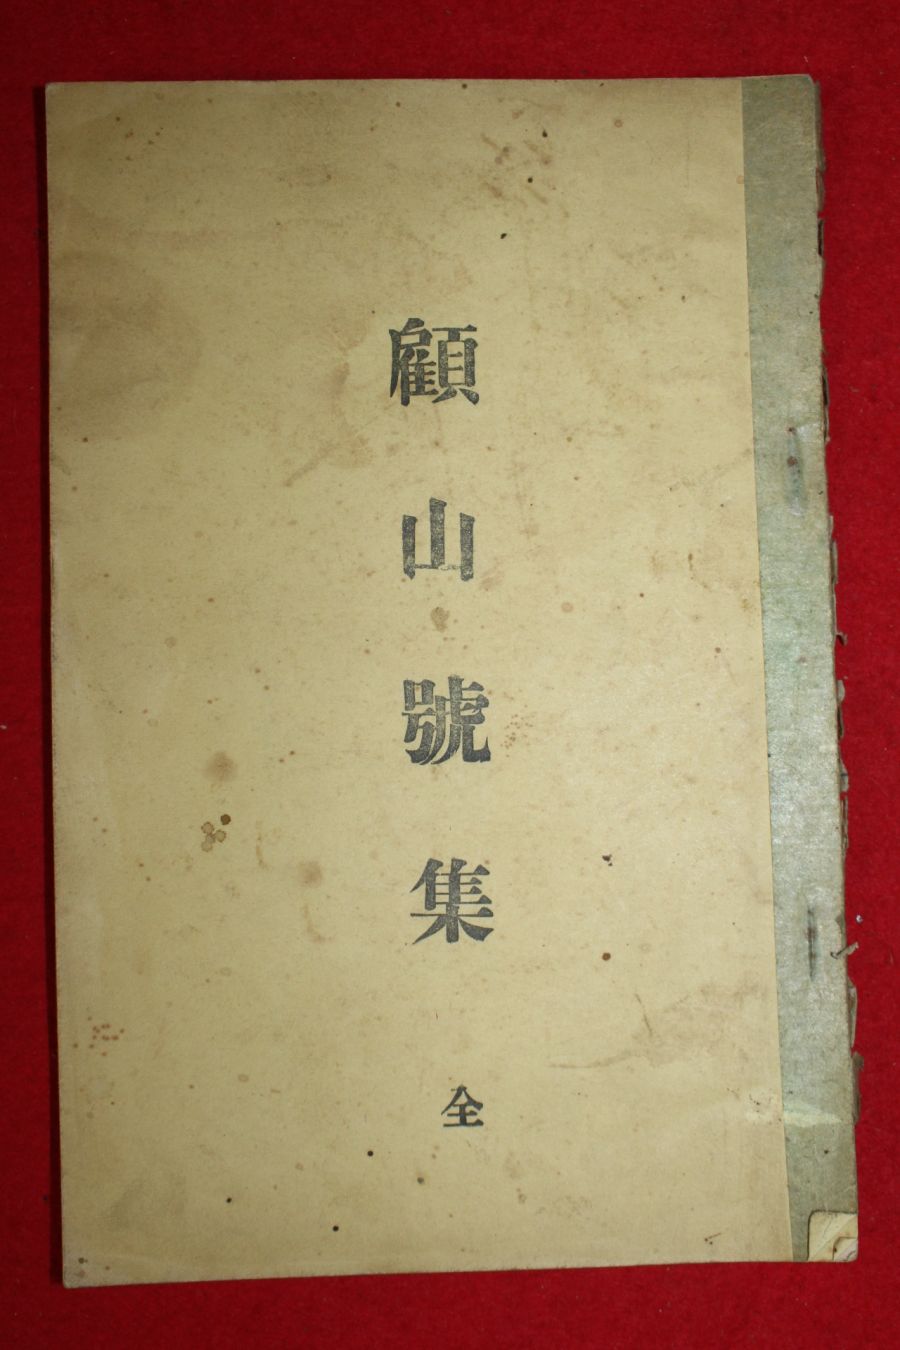 顧山號集
全